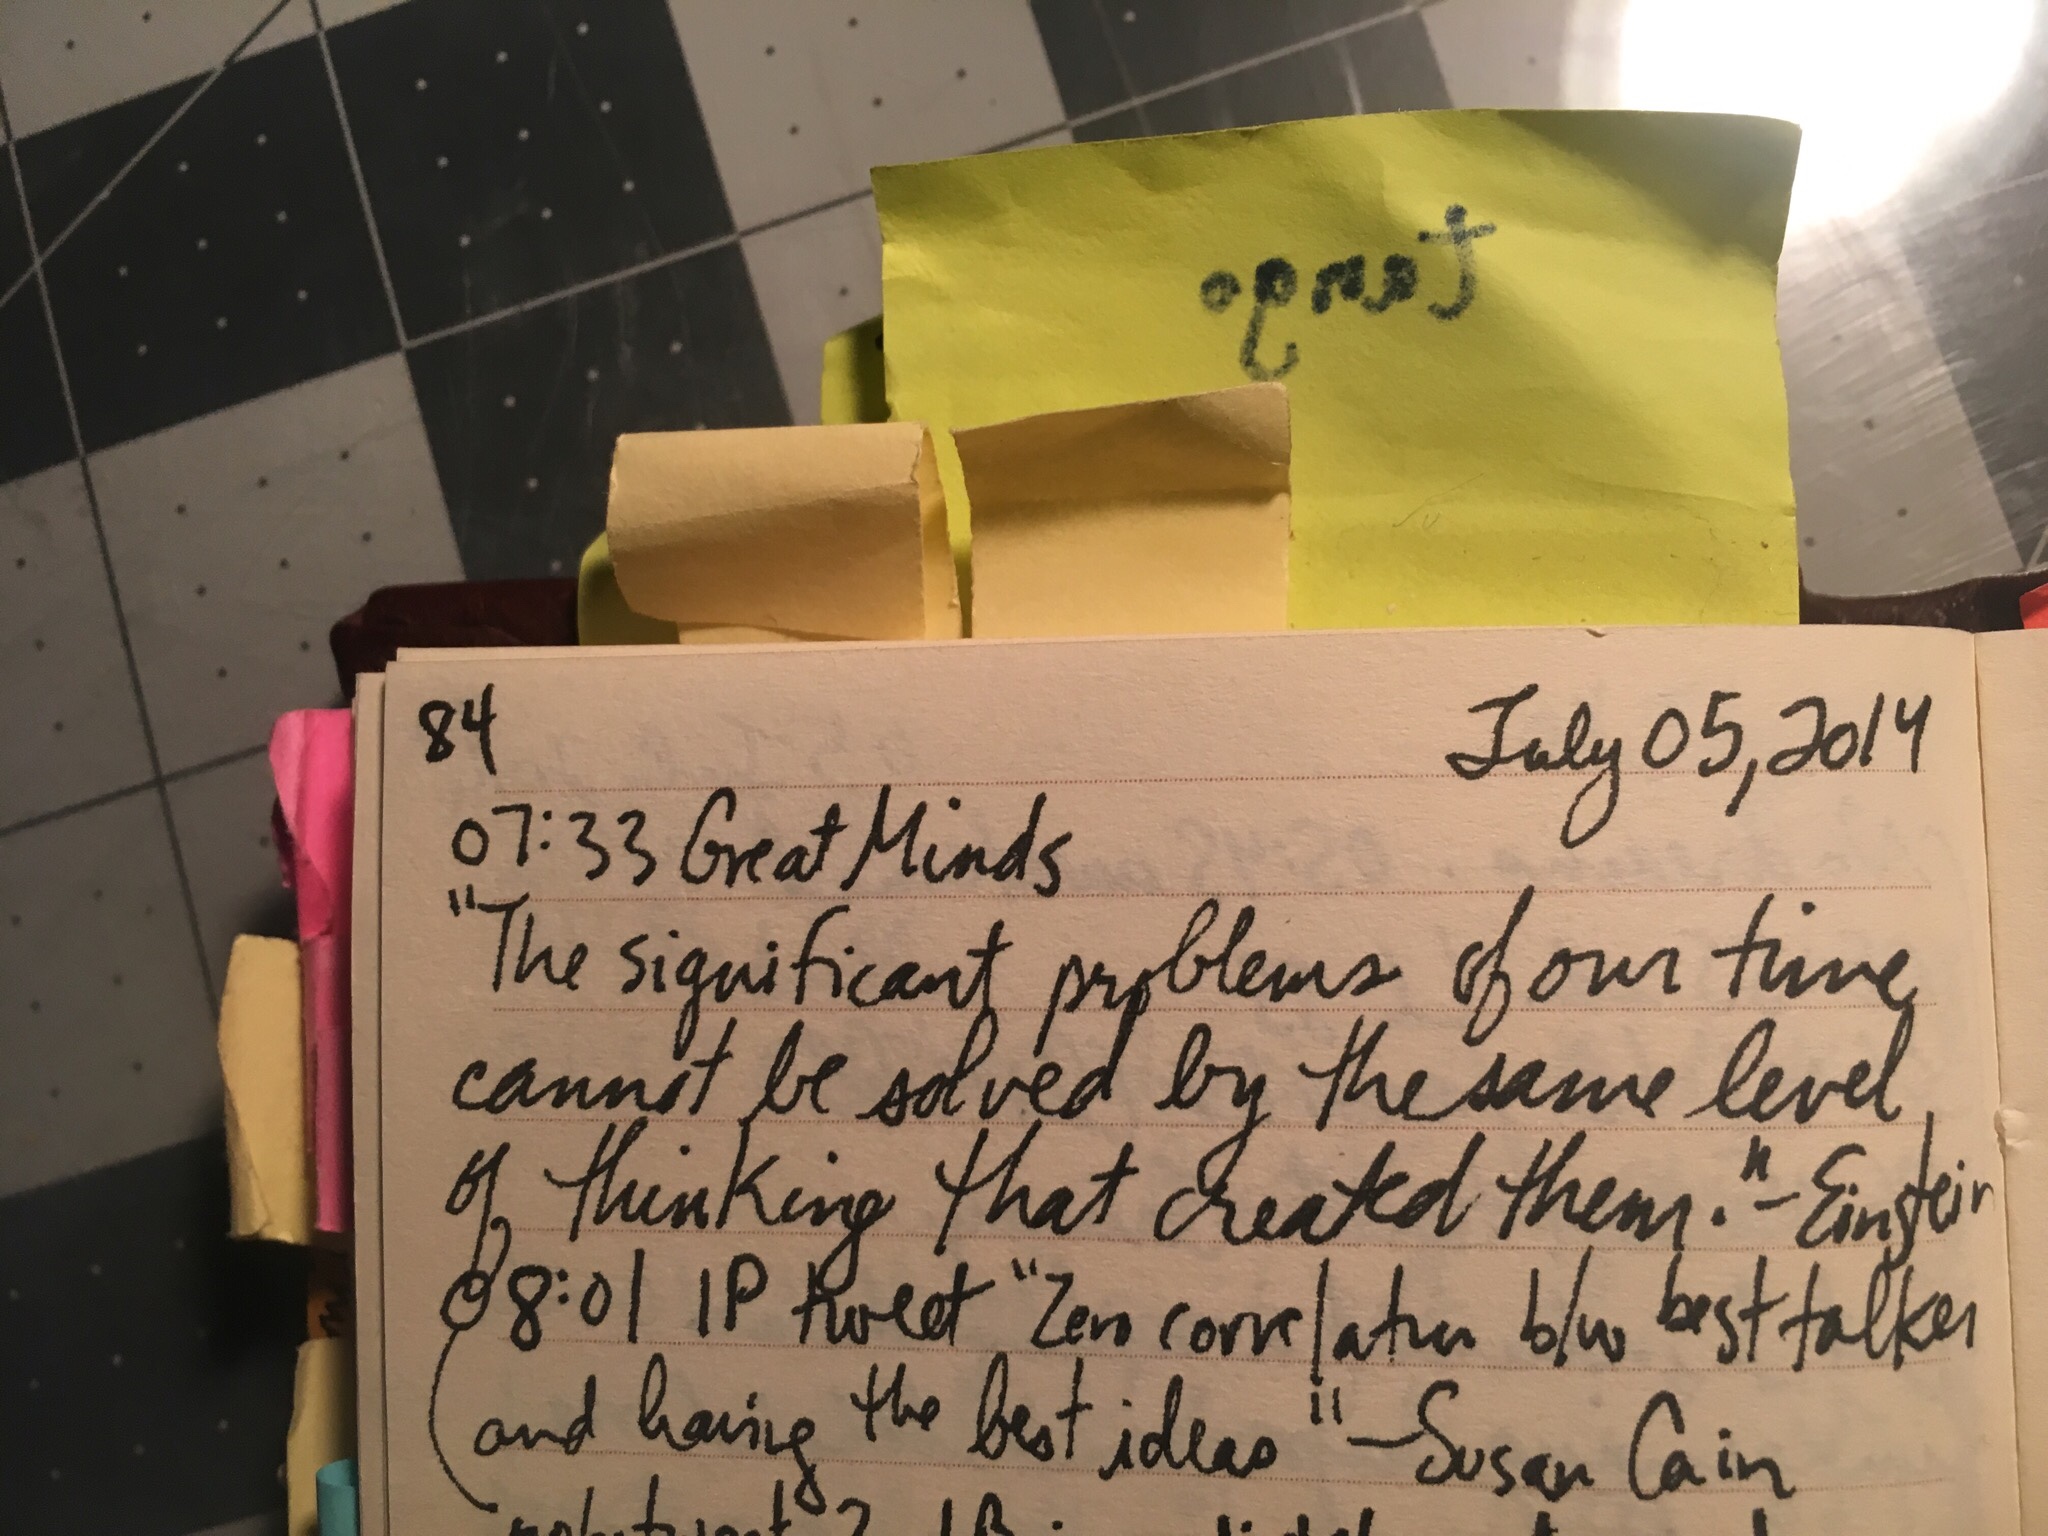 84
July 05, 2014
07:33 Great Minds
"The significant problems of our time
cannot be solved by the same level
of thinking that created them." - Einstein
08:01 IP tweet "Zero correlation b/w best talker
and having the best ideas" - Susan Cain